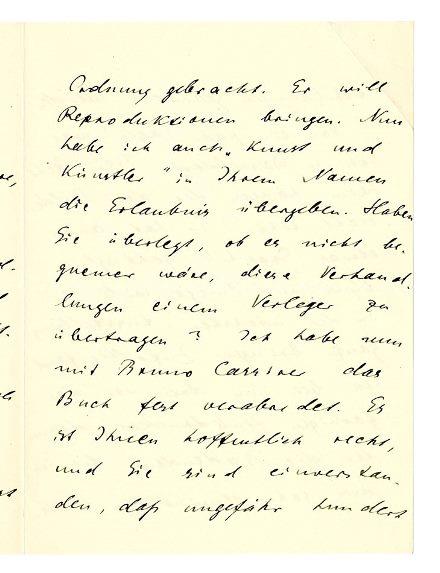 Ordnung gebracht. Er will
Reproduktionen bringen. Nun
habe ich auch „Kunst und
Künstler" in Ihrem Namen
die Erlaubnis übergeben. Haben
Sie überlegt, ob es nicht be-
quemer wäre, diese Verhand-
lungen einem Verleger zu
übertragen? Ich habe nun
mit Bruno Cassirer das
Buch fest verabredet. Es
ist Ihnen hoffentlich recht,
und Sie sind einverstan-
den, daß ungefähr hundert